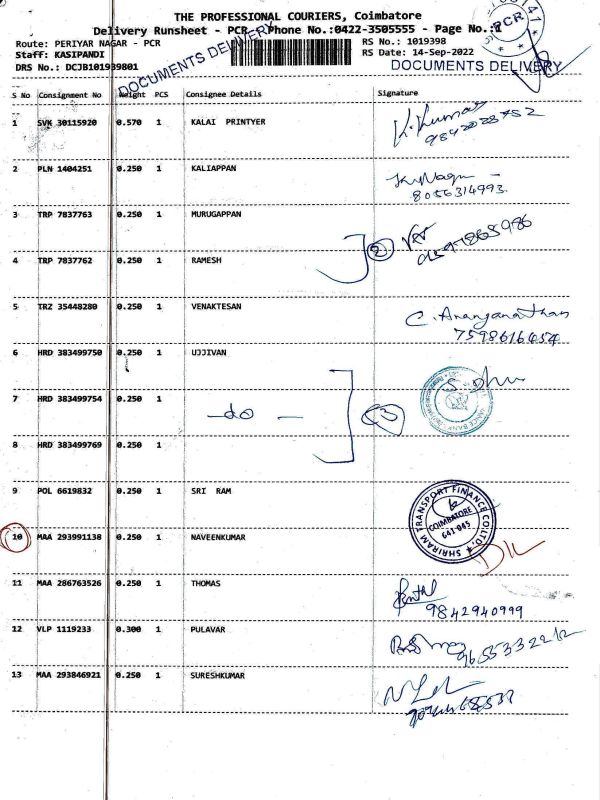 THE PROFESSIONAL COURIERS, Coimbatore
Delivery Runsheet - PCR - Phone No.:0422-3505555 - Page No.:1
Route: PERIYAR NAGAR - PCR
RS No.: 1019398
Staff: KASIPANDI
RS Date: 14-Sep-2022
DRS No.: DCJB101939801
DOCUMENTS DELIVERY
DOCUMENTS DELIVERY
PCR
S No Consignment No Weight PCS Consignee Details Signature
1 SVK 30115920 0.570 1 KALAI PRINTYER
K. Kumar
2 PLN 1404251 0.250 1 KALIAPPAN
8056314993
3 TRP 7837763 0.250 1 MURUGAPPAN
2
4 TRP 7837762 0.250 1 RAMESH
5 TRZ 35448280 0.250 1 VENAKTESAN
7598616454
6 HRD 383499750 0.250 1 UJJIVAN
7 HRD 383499754 0.250 1
-do-
3
8 HRD 383499769 0.250 1
9 POL 6619832 0.250 1 SRI RAM
SHRIRAM TRANSPORT FINANCE CO.LTD.
COIMBATORE
641 045
10 MAA 293991138 0.250 1 NAVEENKUMAR
11 MAA 286763526 0.250 1 THOMAS
9842940999
12 VLP 1119233 0.300 1 PULAVAR
13 MAA 293846921 0.250 1 SURESHKUMAR